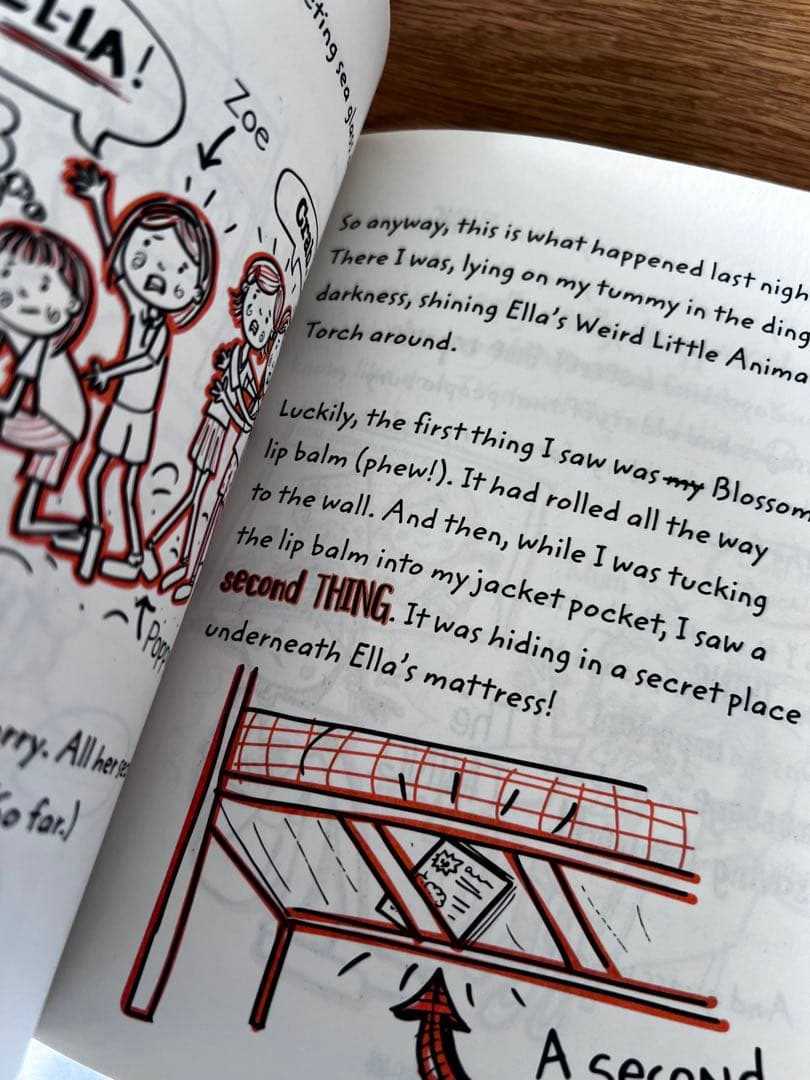 LLA!
Zoe
cting sea glas
Crai
Popp
rry. All her se
So far.)
So anyway, this is what happened last nigh
There I was, lying on my tummy in the ding
darkness, shining Ella's Weird Little Anima
Torch around.
Luckily, the first thing I saw was my Blossom
lip balm (phew!). It had rolled all the way
to the wall. And then, while I was tucking
the lip balm into my jacket pocket, I saw a
second THING. It was hiding in a secret place
underneath Ella's mattress!
A second